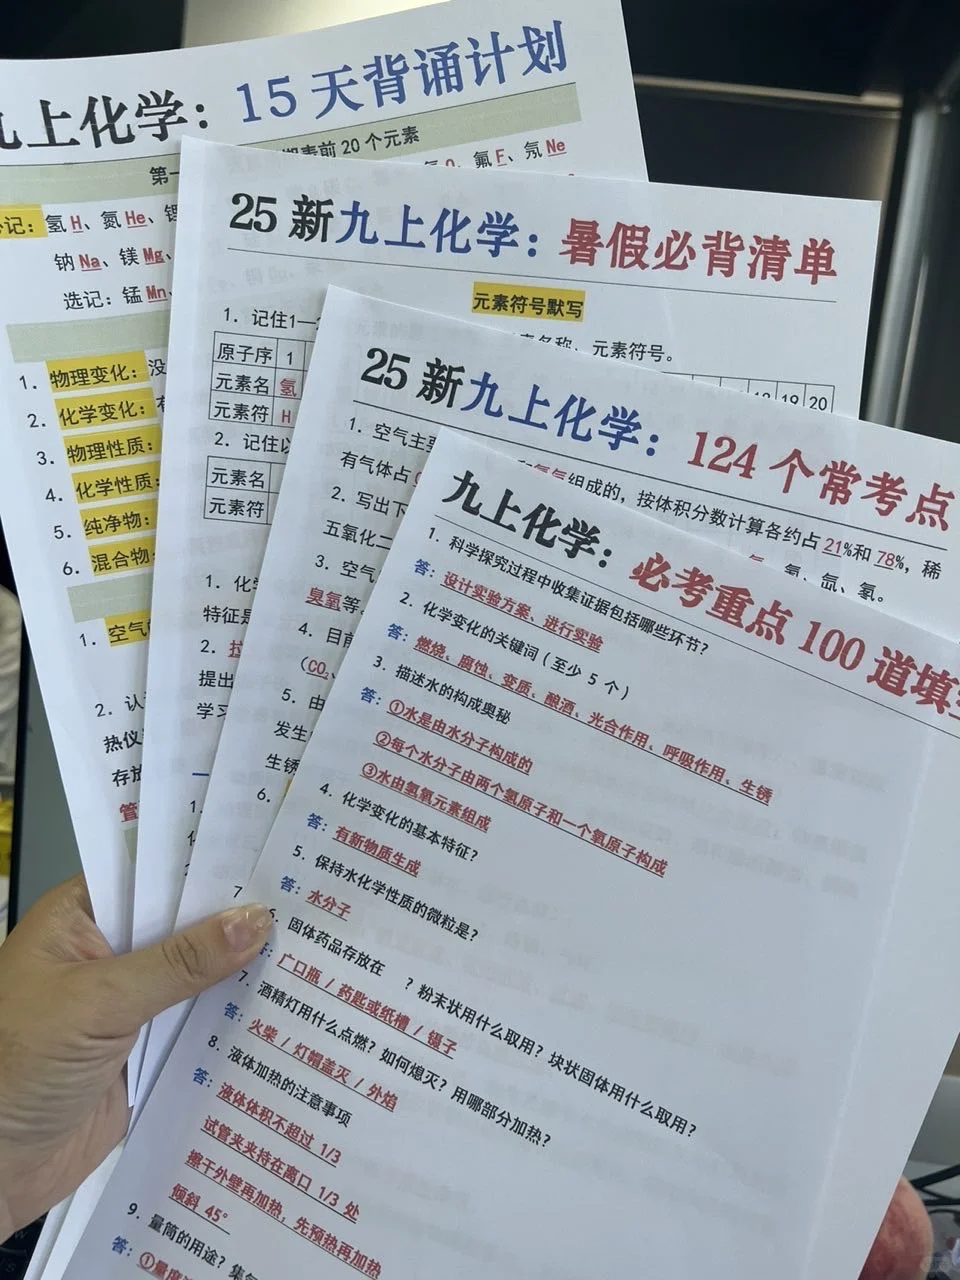 九上化学：15天背诵计划
第一
期表前20个元素
必记：氢H、氮He、锂
氟F、氖Ne
钠Na、镁Mg、
选记：锰Mn、
1. 物理变化：没
2. 化学变化：有
3. 物理性质：
4. 化学性质：
5. 纯净物：
6. 混合物：
1. 空气
2. 认
热仪
存放
管
25新九上化学：暑假必背清单
元素符号默写
1. 记住1—
名称、元素符号。
原子序 1
19 20
元素名 氢
元素符 H
2. 记住以
元素名
元素符
1. 化学
特征是
2. 拉
提出
学习
一
1.
25新九上化学：124个常考点
1. 空气主要
组成的，按体积分数计算各约占21%和78%，稀
有气体占
氦、氙、氡。
2. 写出下
五氧化二
3. 空气
臭氧等
4. 目前
（CO₂、
5. 由
发生
生锈
6.
7
九上化学：必考重点100道填空
1. 科学探究过程中收集证据包括哪些环节？
答：设计实验方案、进行实验
2. 化学变化的关键词（至少 5 个）
答：燃烧、腐蚀、变质、酿酒、光合作用、呼吸作用、生锈
3. 描述水的构成奥秘
答：①水是由水分子构成的
②每个水分子由两个氢原子和一个氧原子构成
③水由氢氧元素组成
4. 化学变化的基本特征？
答：有新物质生成
5. 保持水化学性质的微粒是？
答：水分子
6. 固体药品存放在 ？粉末状用什么取用？块状固体用什么取用？
答：广口瓶 / 药匙或纸槽 / 镊子
7. 酒精灯用什么点燃？如何熄灭？用哪部分加热？
答：火柴 / 灯帽盖灭 / 外焰
8. 液体加热的注意事项
答：液体体积不超过 1/3
试管夹夹持在离口 1/3 处
擦干外壁再加热，先预热再加热
倾斜 45°
9. 量筒的用途？集气
答：①量度